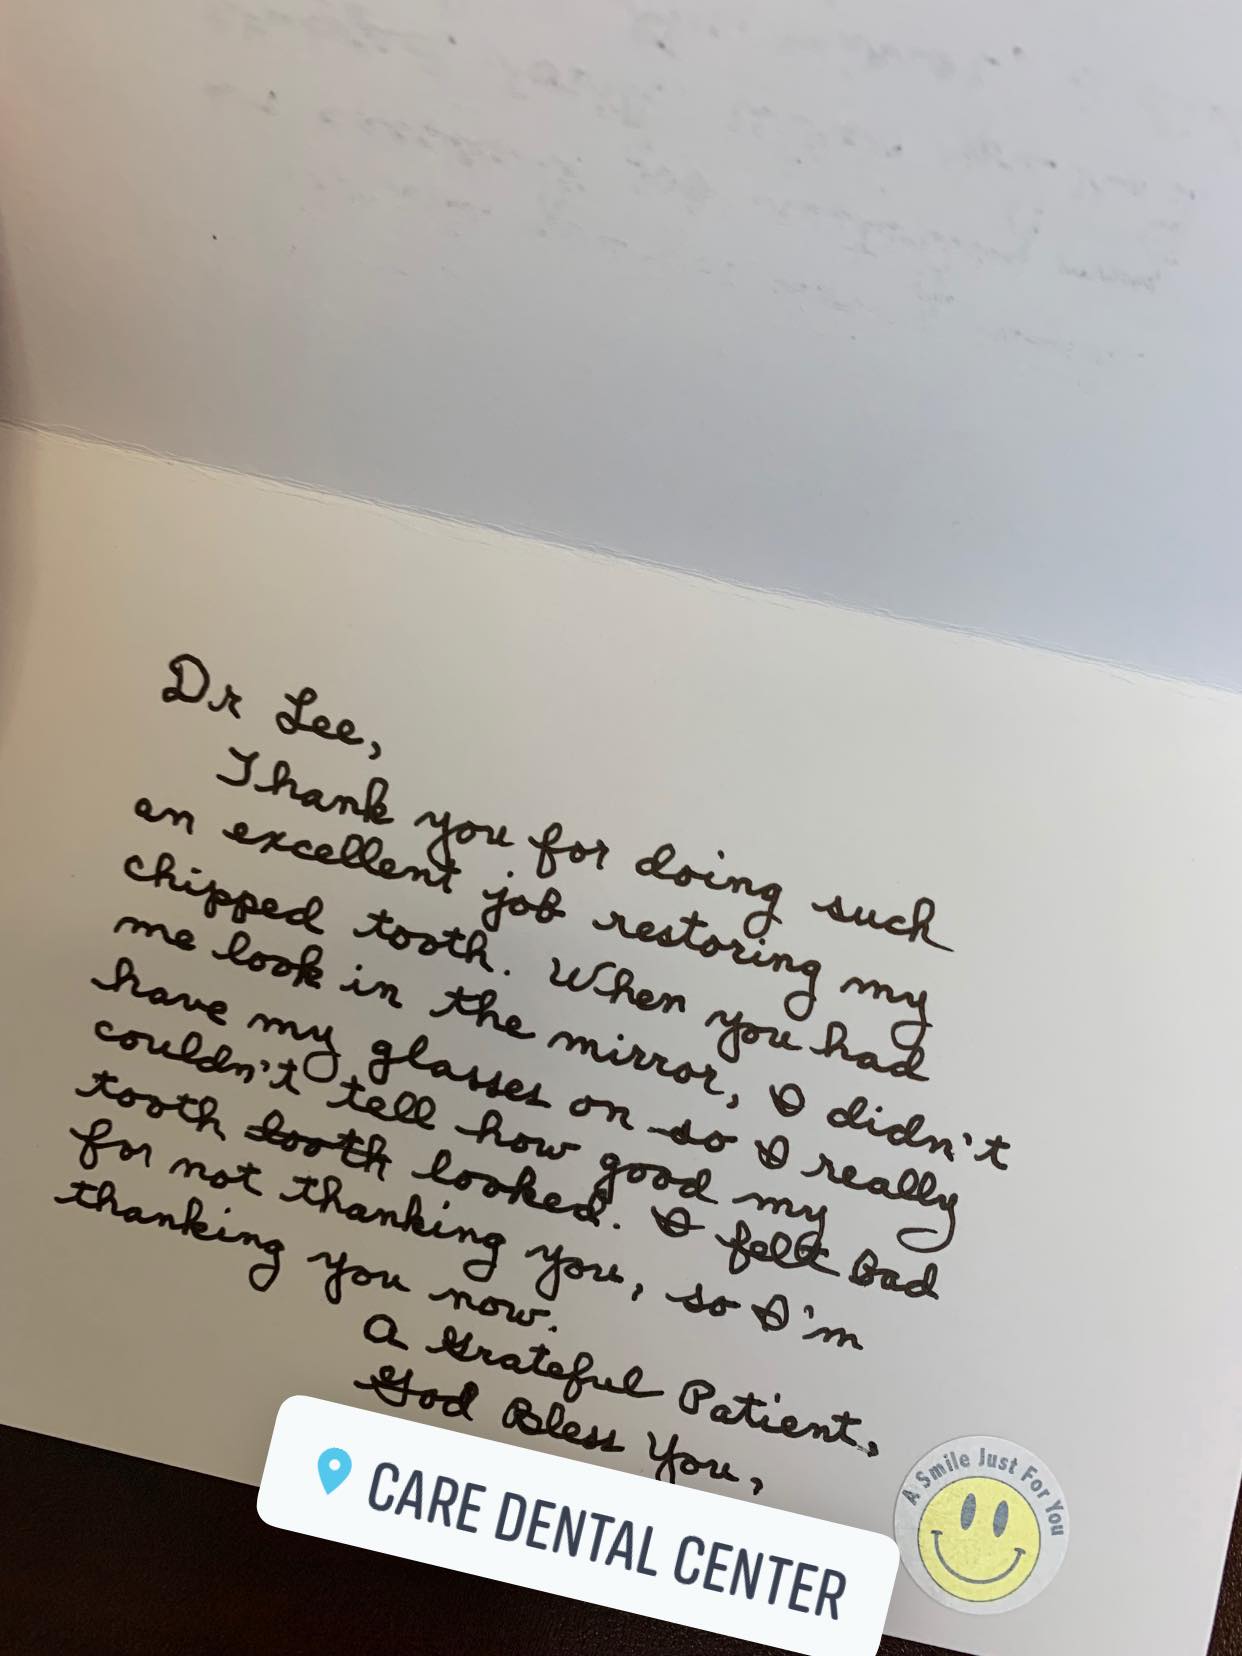 Dr Lee,
Thank you for doing such
an excellent job restoring my
chipped tooth. When you had
me look in the mirror, I didn't
have my glasses on so I really
couldn't tell how good my
tooth tooth looked. I felt bad
for not thanking you, so I'm
thanking you now.
A Grateful Patient,
God Bless You,
CARE DENTAL CENTER
A Smile Just For You